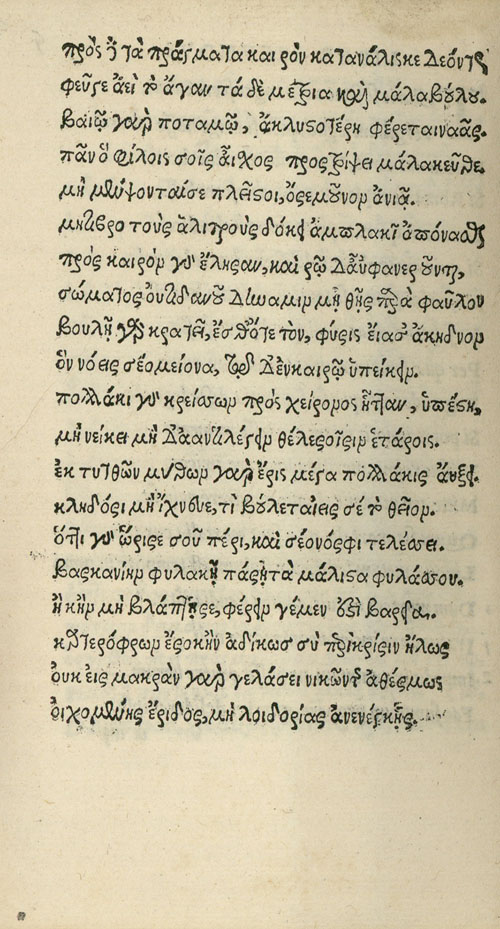 πρὸς ἢ τὰ πράγματα καιρὸν κατανάλισκε δεόντως
φεῦγε ἀεὶ τὸ ἄγαν τὰ δὲ μέτρια καὶ μάλα βούλου.
βαιῷ γὰρ ποταμῷ, ἀκλυστοτέρη φέρεται ναῦς.
πᾶν ὃ φίλοις σοῖς αἶχος προστρίψει μάλα κεῦθε.
μὴ μέμψονταί σε πλεῖστοι, ὅσε μοῦνον ἀνιᾷ.
μὴ τοὺς ἀλιτροὺς δόκει ἀμπλακῖ ἀπόνασθαι
πρὸς καιρὸν γὰρ ἔλησαν, καὶ ῥῷ φανεροῦντ,
σώματος οὐτιδανοῦ δύναμιν μὴ θῇς παρὰ φαῦλον
βουλῇ γὰρ κρατεῖ, ἔσθ' ὅτε τὸν, φύσις εἴασ' ἀκηδνον
ὃν νόεις σέο μείονα, τῷδ' ἐν καιρῷ ὑπείκειν.
πολλάκι γὰρ κρείσσων πρὸς χείρονος ἧτταν, ὑπέστη,
μὴ νείκει μὴ δ' ἀντιλέγειν θέλε σοῖσιν ἑτάροις.
ἐκ τυτθῶν μύθων γὰρ ἔρις μέγα πολλάκις αὔξει.
κληδόσι μὴ ἴχνευε, τί βούλεται εἰς σέ τὸ θεῖον.
ὅττι γὰρ ὥρισε σοῦ πέρι, καὶ σέο νόσφι τελέσσει.
βασκανίην φυλακῇ πάσῃ τὰ μάλιστα φυλάσσου.
ἢ κἢν μὴ βλάπτῃσε, φέρειν γέμεν ἐστὶ βαρεῖα.
καρτερόφρων ἔσο κἢν ἀδίκως σὺ παρὰ κρίσιν ἥλως
οὐκ εἰς μακρὰν γὰρ γελάσει νικῶντ' ἀθέσμως
οἰχομένης ἔριδος, μὴ λοιδορίας ἀνενέγκῃς.